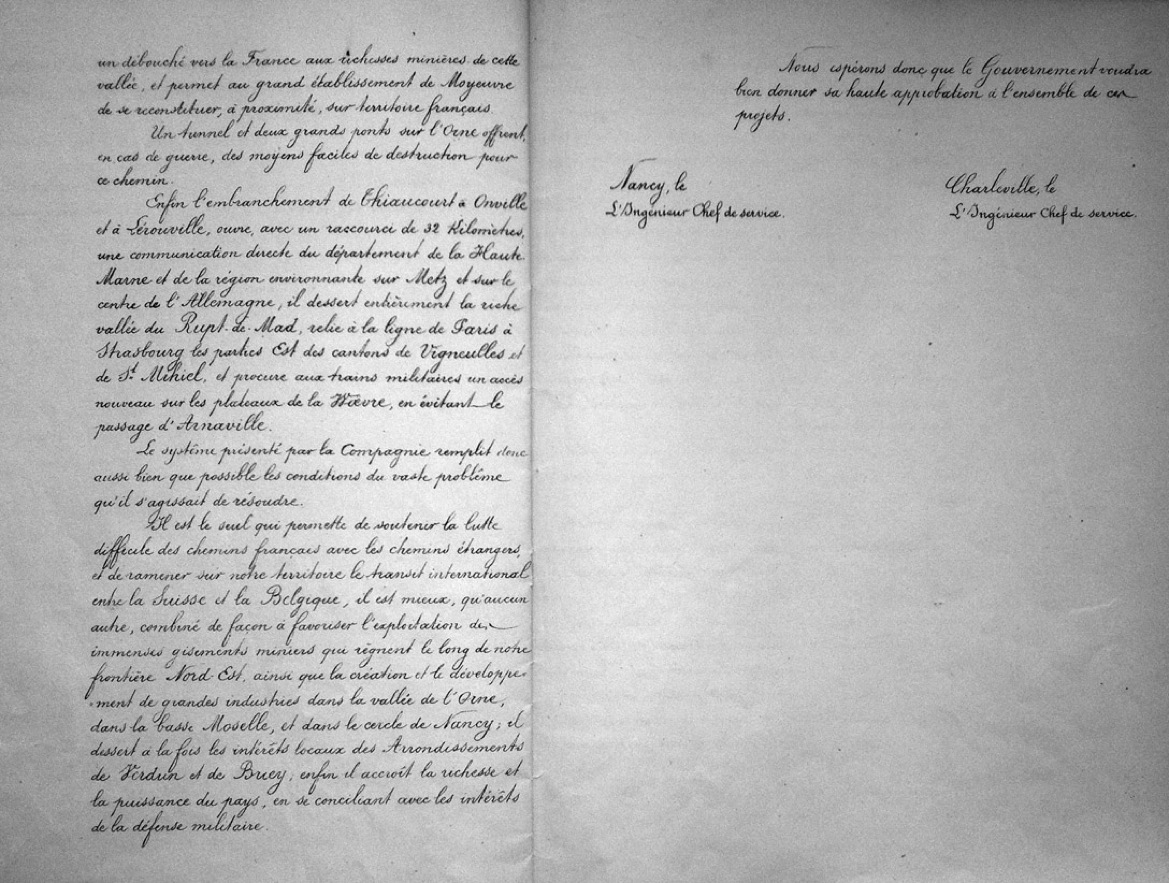 un débouché vers la France aux richesses minières de cette
vallée, et permet au grand établissement de Moyeuvre
de se reconstituer, à proximité, sur territoire français
Un tunnel et deux grands ponts sur l'Orne offrent,
en cas de guerre, des moyens faciles de destruction pour
ce chemin.
Enfin l'embranchement de Thiaucourt à Onville
et à Lérouville, ouvre, avec un raccourci de 32 Kilomètres,
une communication directe du département de la Haute
Marne et de la région environnante sur Metz et sur le
centre de l'Allemagne, il dessert entièrement la riche
vallée du Rupt-de-Mad, relie à la ligne de Paris à
Strasbourg les parties Est des cantons de Vigneulles et
de St. Mihiel, et procure aux trains militaires un accès
nouveau sur les plateaux de la Woëvre, en évitant le
passage d'Arnaville.
Le système présenté par la Compagnie remplit donc
aussi bien que possible les conditions du vaste problême
qu'il s'agissait de résoudre.
Il est le seul qui permette de soutenir la lutte
difficile des chemins français avec les chemins étrangers,
et de ramener sur notre territoire le transit international
entre la Suisse et la Belgique, il est mieux, qu'aucun
autre, combiné de façon à favoriser l'exploitation des
immenses gisements miniers qui règnent le long de notre
frontière Nord-Est, ainsi que la création et le développe-
-ment de grandes industries dans la vallée de l'Orne,
dans la basse Moselle, et dans le cercle de Nancy; il
dessert à la fois les intérêts locaux des Arrondissements
de Verdun et de Briey; enfin il accroît la richesse et
la puissance du pays, en se conciliant avec les intérêts
de la défense militaire.
Nous espérons donc que le Gouvernement voudra
bien donner sa haute approbation à l'ensemble de ces
projets.
Nancy, le
L'Ingénieur Chef de service.
Charleville, le
L'Ingénieur Chef de service.